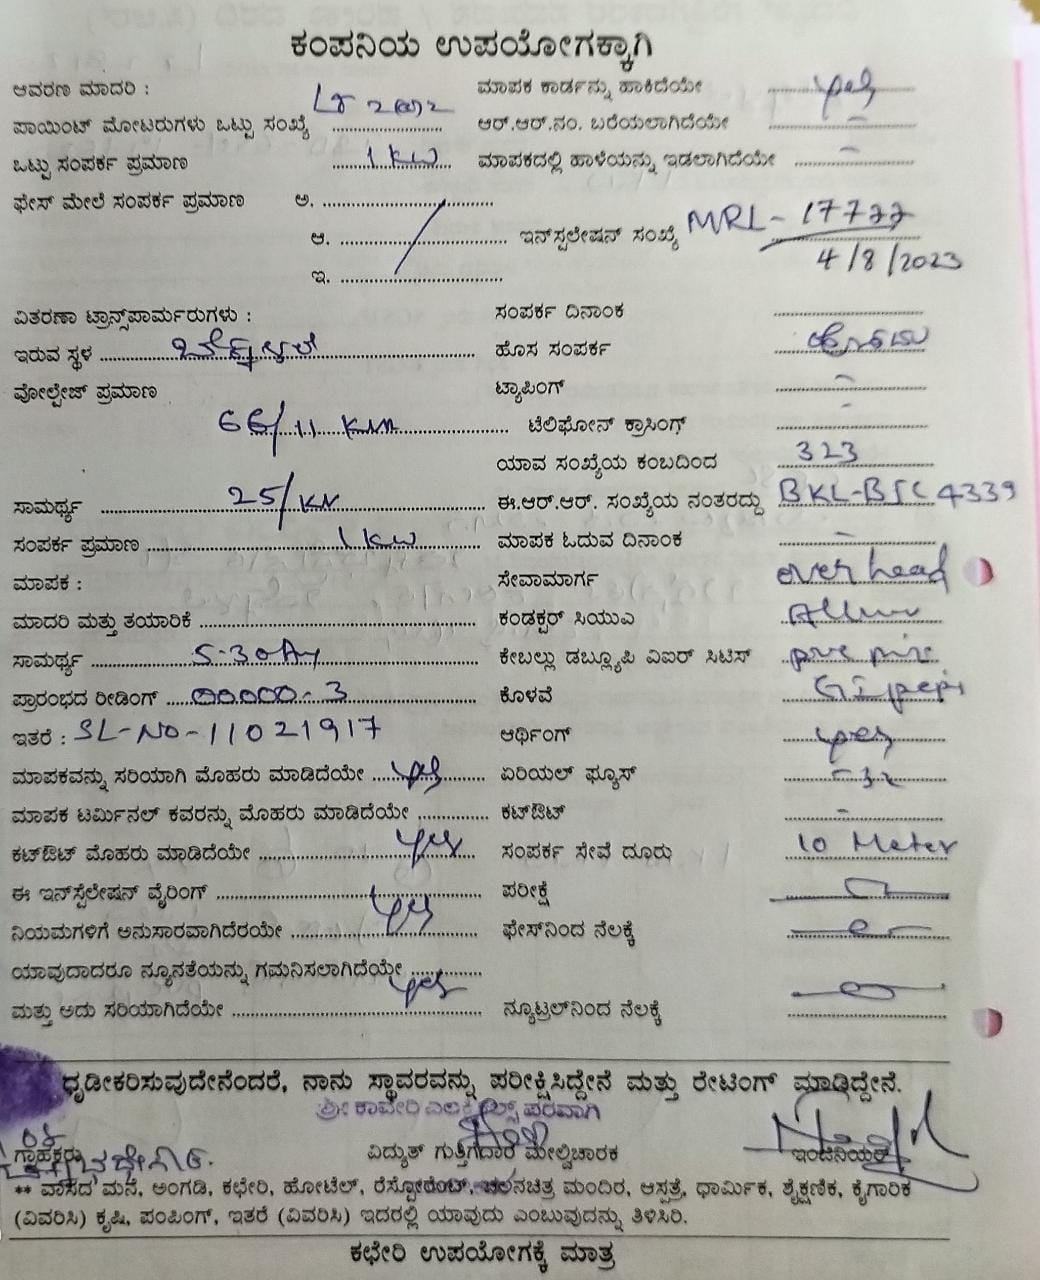 ಕಂಪನಿಯ ಉಪಯೋಗಕ್ಕಾಗಿ
ಆವರಣ ಮಾದರಿ : LT 2(a)2 ಮಾಪಕ ಕಾರ್ಡನ್ನು ಹಾಕಿದೆಯೇ yes
ಪಾಯಿಂಟ್ ಮೋಟರುಗಳು ಒಟ್ಟು ಸಂಖ್ಯೆ ಆರ್.ಆರ್.ನಂ. ಬರೆಯಲಾಗಿದೆಯೇ –
ಒಟ್ಟು ಸಂಪರ್ಕ ಪ್ರಮಾಣ 1 KW ಮಾಪಕದಲ್ಲಿ ಹಾಳೆಯನ್ನು ಇಡಲಾಗಿದೆಯೇ –
ಫೇಸ್ ಮೇಲೆ ಸಂಪರ್ಕ ಪ್ರಮಾಣ ಅ.
ಆ. ಇನ್‌ಸ್ಟಲೇಷನ್ ಸಂಖ್ಯೆ MRL- 17777
4/8/2023
ಇ.
ವಿತರಣಾ ಟ್ರಾನ್ಸ್‌ಪಾರ್ಮರುಗಳು : ಸಂಪರ್ಕ ದಿನಾಂಕ
ಇರುವ ಸ್ಥಳ ಹೊಸ ಸಂಪರ್ಕ ಹೌದು
ವೋಲ್ಟೇಜ್ ಪ್ರಮಾಣ ಟ್ಯಾಪಿಂಗ್ –
66/11 ಟೆಲಿಫೋನ್ ಕ್ರಾಸಿಂಗ್ –
ಯಾವ ಸಂಖ್ಯೆಯ ಕಂಬದಿಂದ 323
ಸಾಮರ್ಥ್ಯ 25/ ಈ.ಆರ್.ಆರ್. ಸಂಖ್ಯೆಯ ನಂತರದ್ದು BKL-BJL 4339
ಸಂಪರ್ಕ ಪ್ರಮಾಣ 1 KW ಮಾಪಕ ಓದುವ ದಿನಾಂಕ –
ಮಾಪಕ : ಸೇವಾಮಾರ್ಗ over head
ಮಾದರಿ ಮತ್ತು ತಯಾರಿಕೆ ಕಂಡಕ್ಟರ್ ಸಿಯುಎ
ಸಾಮರ್ಥ್ಯ 5-30 ಕೇಬಲ್ಲು ಡಬ್ಲ್ಯೂಪಿ ವಿಐಆರ್ ಸಿಟಿಸ್
ಪ್ರಾರಂಭದ ರೀಡಿಂಗ್ 00000-3 ಕೊಳವೆ GI pepi
ಇತರೆ : SL-NO-11021917 ಆರ್ಥಿಂಗ್ yes
ಮಾಪಕವನ್ನು ಸರಿಯಾಗಿ ಮೊಹರು ಮಾಡಿದೆಯೇ yes ಏರಿಯಲ್ ಫ್ಯೂಸ್ -32
ಮಾಪಕ ಟರ್ಮಿನಲ್ ಕವರನ್ನು ಮೊಹರು ಮಾಡಿದೆಯೇ ಕಟ್‌ಔಟ್ –
ಕಟ್‌ಔಟ್ ಮೊಹರು ಮಾಡಿದೆಯೇ yes ಸಂಪರ್ಕ ಸೇವೆ ದೂರು 10 Meter
ಈ ಇನ್‌ಸ್ಟೆಲೇಷನ್ ವೈರಿಂಗ್ ಪರೀಕ್ಷೆ
ನಿಯಮಗಳಿಗೆ ಅನುಸಾರವಾಗಿದೆರಯೇ yes ಫೇಸ್‌ನಿಂದ ನೆಲಕ್ಕೆ
ಯಾವುದಾದರೂ ನ್ಯೂನತೆಯನ್ನು ಗಮನಿಸಲಾಗಿದೆಯೇ
ಮತ್ತು ಅದು ಸರಿಯಾಗಿದೆಯೇ yes ನ್ಯೂಟ್ರಲ್‌ನಿಂದ ನೆಲಕ್ಕೆ
ಧೃಡೀಕರಿಸುವುದೇನೆಂದರೆ, ನಾನು ಸ್ಥಾವರವನ್ನು ಪರೀಕ್ಷಿಸಿದ್ದೇನೆ ಮತ್ತು ರೇಟಿಂಗ್ ಮಾಡಿದ್ದೇನೆ.
ಶ್ರೀ ಕಾವೇರಿ ಎಲೆಕ್ಟ್ರಿಕಲ್ಸ್ ಪರವಾಗಿ
ಗ್ರಾಹಕರು ವಿದ್ಯುತ್ ಗುತ್ತಿಗೆದಾರ ಮೇಲ್ವಿಚಾರಕ ಇಂಜಿನಿಯರ್
** ವಾಸದ ಮನೆ, ಅಂಗಡಿ, ಕಛೇರಿ, ಹೋಟೆಲ್, ರೆಸ್ಟೋರೆಂಟ್, ಚಲನಚಿತ್ರ ಮಂದಿರ, ಆಸ್ಪತ್ರೆ, ಧಾರ್ಮಿಕ, ಶೈಕ್ಷಣಿಕ, ಕೈಗಾರಿಕ
(ವಿವರಿಸಿ) ಕೃಷಿ, ಪಂಪಿಂಗ್, ಇತರೆ (ವಿವರಿಸಿ) ಇದರಲ್ಲಿ ಯಾವುದು ಎಂಬುವುದನ್ನು ತಿಳಿಸಿರಿ.
ಕಛೇರಿ ಉಪಯೋಗಕ್ಕೆ ಮಾತ್ರ